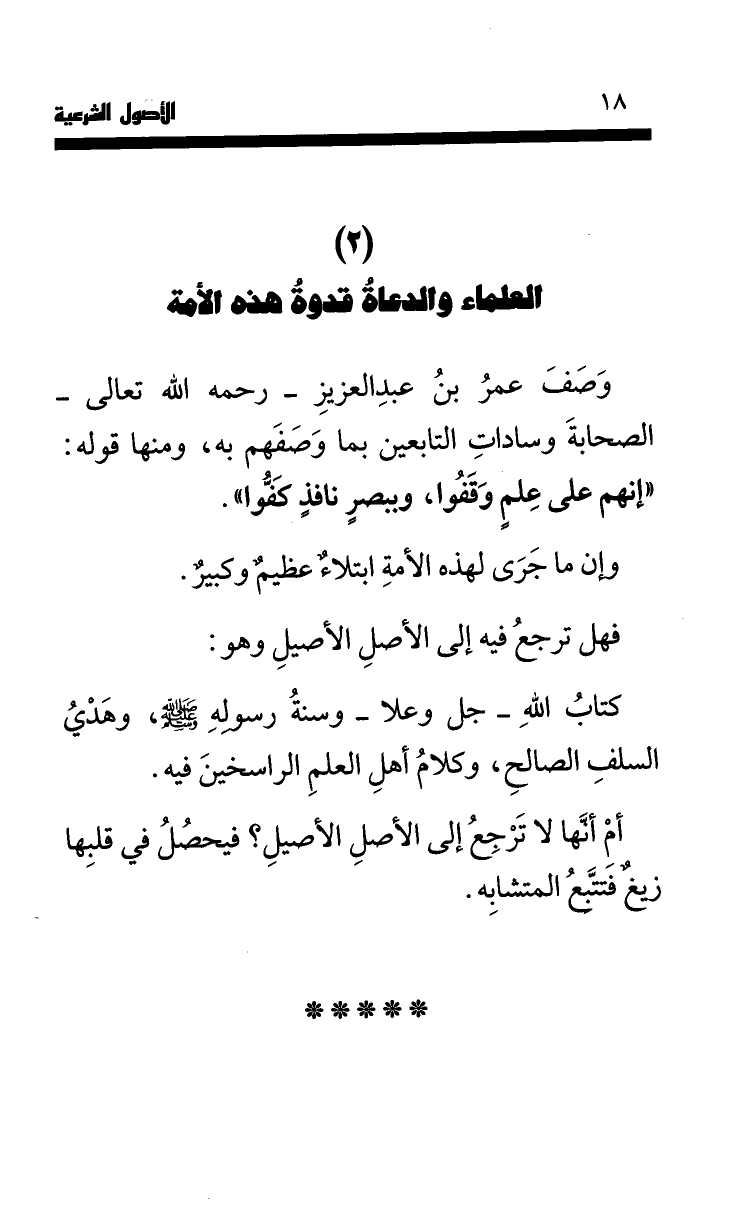 ١٨
الأصول الشرعية
(٢)
العلماء والدعاةُ قدوةُ هذه الأمة
وَصَفَ عمرُ بنُ عبدِالعزيزِ ـ رحمه الله تعالى ـ
الصحابةَ وساداتِ التابعين بما وَصَفَهم به، ومنها قوله:
«إنهم على عِلمٍ وَقَفُوا، وببصرٍ نافذٍ كَفُّوا».
وإن ما جَرَى لهذه الأمةِ ابتلاءٌ عظيمٌ وكبيرٌ.
فهل ترجعُ فيه إلى الأصلِ الأصيلِ وهو:
كتابُ اللهِ ـ جل وعلا ـ وسنةُ رسولِهِ ﷺ، وهَدْيُ
السلفِ الصالحِ، وكلامُ أهلِ العلمِ الراسخينَ فيه.
أمْ أنَّها لا تَرْجِعُ إلى الأصلِ الأصيلِ؟ فيحصُلُ في قلبِها
زيغٌ فَتَتَّبِعُ المتشابِه.
*****